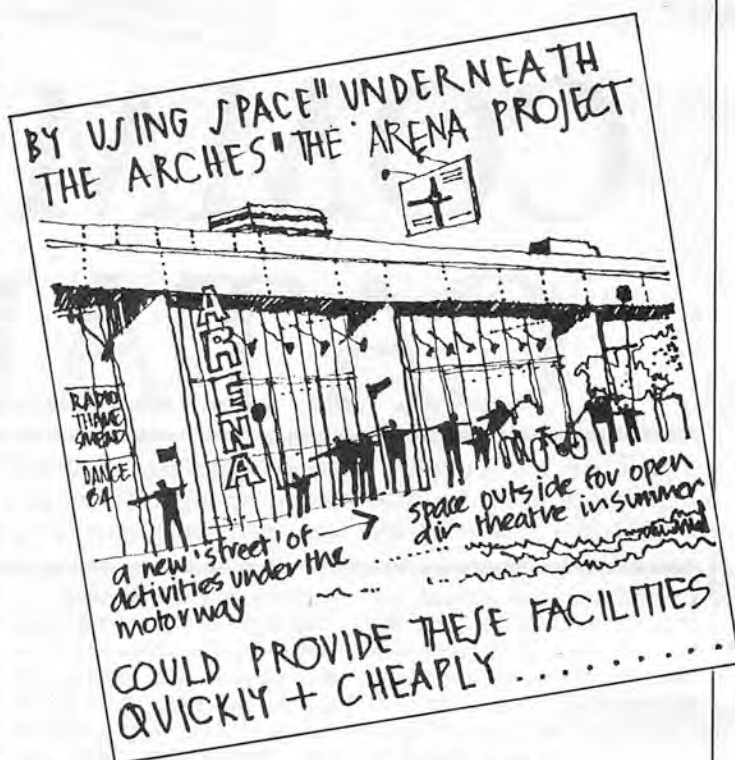 BY USING SPACE "UNDERNEATH
THE ARCHES" THE ARENA PROJECT
ARENA
RADIO
THAMESMEAD
DANCE
a new 'street' of
activities under the
motorway
space outside for open
air theatre in summer
COULD PROVIDE THESE FACILITIES
QUICKLY + CHEAPLY .........